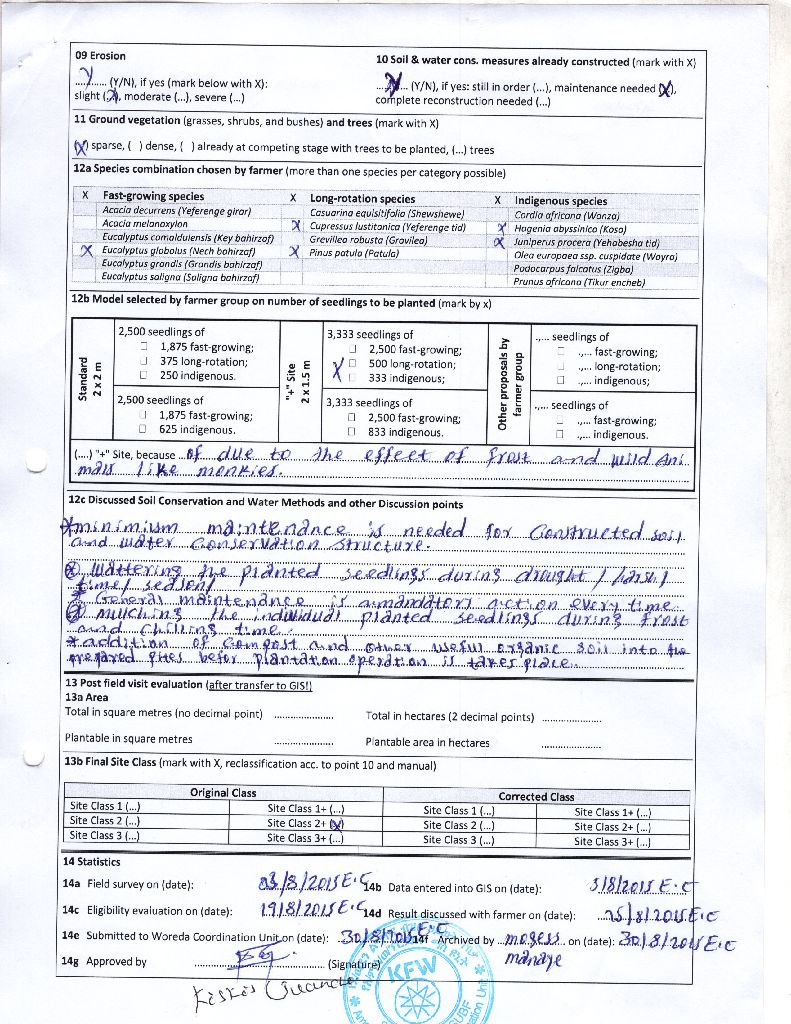 09 Erosion
..Y.. (Y/N), if yes (mark below with X):
slight (X), moderate (...), severe (...)
10 Soil & water cons. measures already constructed (mark with X)
..Y.. (Y/N), if yes: still in order (...), maintenance needed (X),
complete reconstruction needed (...)
11 Ground vegetation (grasses, shrubs, and bushes) and trees (mark with X)
(X) sparse, ( ) dense, ( ) already at competing stage with trees to be planted, (...) trees
12a Species combination chosen by farmer (more than one species per category possible)
X Fast-growing species X Long-rotation species X Indigenous species
Acacia decurrens (Yeferenge girar) Casuarina equisitifolia (Shewshewe) Cordia africana (Wanza)
Acacia melanoxylon X Cupressus lustitanica (Yeferenge tid) X Hagenia abyssinica (Koso)
Eucalyptus camaldulensis (Key bahirzaf) Grevilea robusta (Gravilea) X Juniperus procera (Yehabesha tid)
X Eucalyptus globolus (Nech bahirzaf) X Pinus patula (Patula) Olea europaea ssp. cuspidate (Wayra)
Eucalyptus grandis (Grandis bahirzaf) Podocarpus falcatus (Zigba)
Eucalyptus saligna (Saligna bahirzaf) Prunus africana (Tikur encheb)
12b Model selected by farmer group on number of seedlings to be planted (mark by x)
Standard
2 x 2 m
2,500 seedlings of
☐ 1,875 fast-growing;
☐ 375 long-rotation;
☐ 250 indigenous.
2,500 seedlings of
☐ 1,875 fast-growing;
☐ 625 indigenous.
"+" Site
2 x 1.5 m
3,333 seedlings of
☐ 2,500 fast-growing;
X ☐ 500 long-rotation;
☐ 333 indigenous;
3,333 seedlings of
☐ 2,500 fast-growing;
☐ 833 indigenous.
Other proposals by
farmer group
.,... seedlings of
☐ .,... fast-growing;
☐ .,... long-rotation;
☐ .,... indigenous;
.,... seedlings of
☐ .,... fast-growing;
☐ .,... indigenous.
(....) "+" Site, because of due to the effect of frost and wild Ani
mals like monkies.
12c Discussed Soil Conservation and Water Methods and other Discussion points
*minimium maintenance is needed for Constructed soil
and water Conservation structure.
* Wattering the planted seedlings during drought / harsh/
time/ season/
* General maintenance is a mandatory action every time
* mulching the individual planted seedlings during frost
and chilling time.
*addition of compost and other useful organic soil into the
prepared pites befor plantation operation is takes place.
13 Post field visit evaluation (after transfer to GIS!)
13a Area
Total in square metres (no decimal point) .................... Total in hectares (2 decimal points) ....................
Plantable in square metres .................... Plantable area in hectares ....................
13b Final Site Class (mark with X, reclassification acc. to point 10 and manual)
Original Class Corrected Class
Site Class 1 (...) Site Class 1+ (...) Site Class 1 (...) Site Class 1+ (...)
Site Class 2 (...) Site Class 2+ (X) Site Class 2 (...) Site Class 2+ (...)
Site Class 3 (...) Site Class 3+ (...) Site Class 3 (...) Site Class 3+ (...)
14 Statistics
14a Field survey on (date): 03/8/2015 E.C 14b Data entered into GIS on (date): 5/8/2015 E.C
14c Eligibility evaluation on (date): 19/8/2015 E.C 14d Result discussed with farmer on (date): 25/8/2015 E.C
14e Submitted to Woreda Coordination Unit on (date): 30/8/2015 E.C 14f Archived by mogess on (date): 30/8/2015 E.C
manaye
14g Approved by .................... (Signature)
KFW